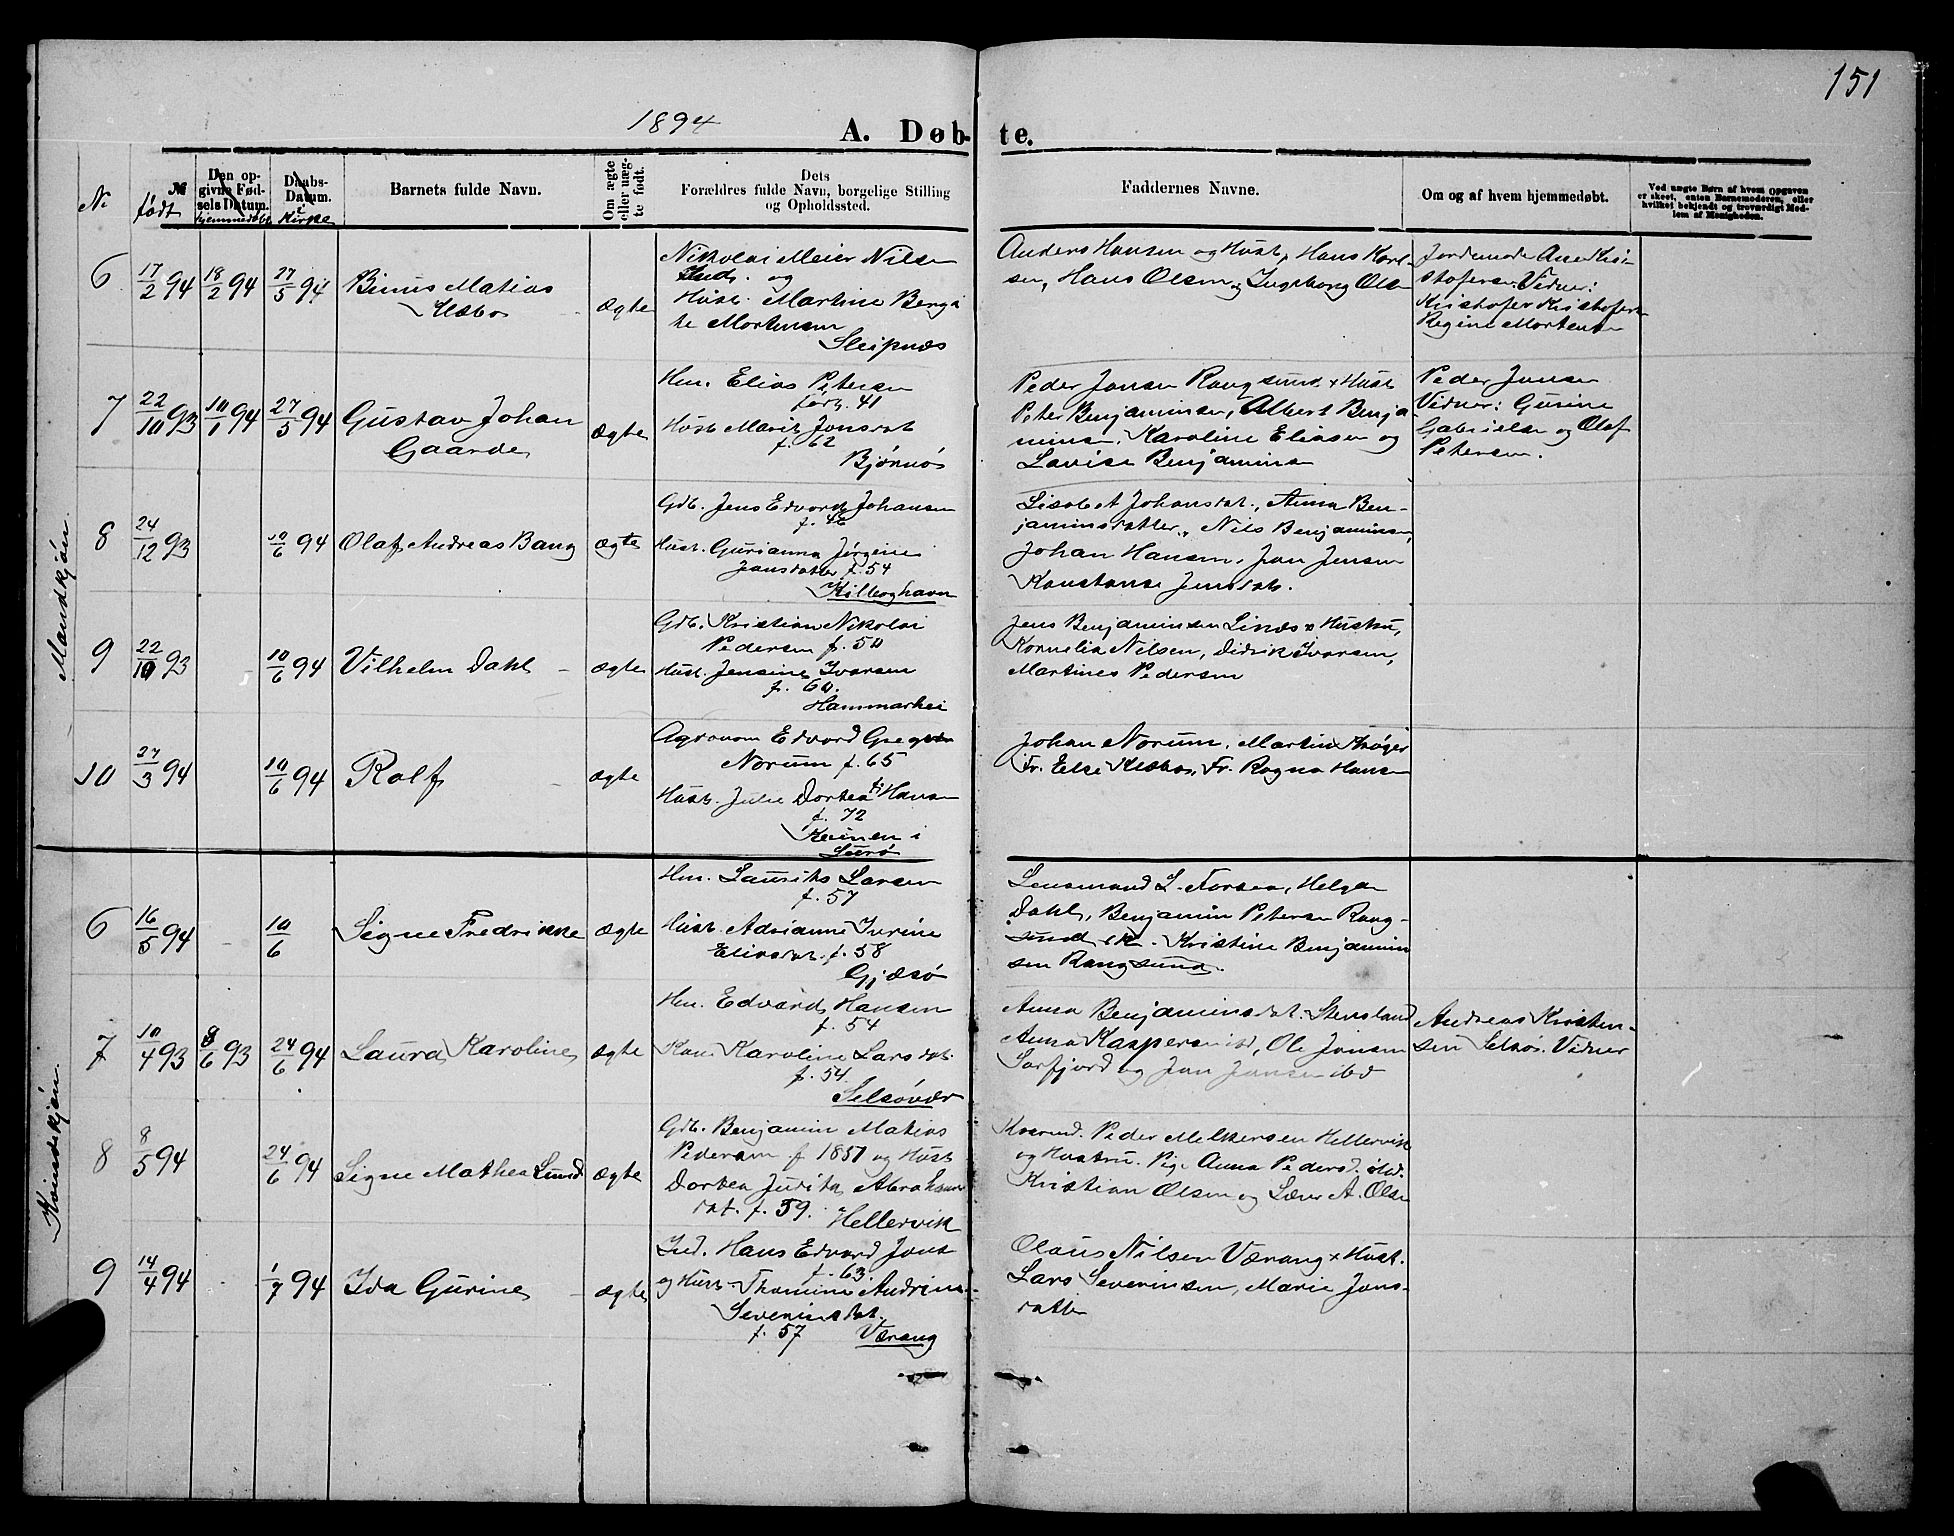 151
1894
A. Døbte.
Nr
№ født
Den opgivne Fødsels Datum. hjemmedøbt
Daabs-Datum. i Kirke
Barnets fulde Navn.
Om ægte eller uægte født.
Dets Forældres fulde Navn, borgelige Stilling og Opholdssted.
Faddernes Navne.
Om og af hvem hjemmedøbt.
Ved uægte Børn af hvem Opgaven er skeet, enten Barnemoderen, eller hvilket bekjendt og troværdigt Medlem af Menigheden.
Mandkjøn.
6 17/2 94 18/2 94 27/5 94
Matias
ægte
Nikolai Meier Nilsen
Inds. og
Hust. Martine Bergi
te Mortensen
Sleipnæs
Anders Hansen og Hust, Hans Karl-
sen, Hans Olsen og Ingeborg Olsen
Jordemode Ane Kri-
stofersen Vidner:
Kristofer Kristofers
Regine Mortensen
7 22/10 93 10/1 94 27/5 94
Gustav Johan
Gaarde
ægte
Hm. Elias Petersen
født. 41
Hust Marit Jonsdat
f. 62
Bjørnø
Peder Jonsen Rangsund + Hust
Peter Benjaminsen, Albert Benja-
minsen, Karoline Eliasen og
Lovise Benjamins
Peder Jonsen
Vidner: Gurine
Gabrielsen og Olaf
Petersen.
8 24/12 93 10/6 94
Olaf Andreas Bang
ægte
Gdb. Jens Edvard Johansen
f. 46
Hust. Gurianna Jørgine
Jonsdatter f. 54
Kilboghavn
Lisabet Johansdat., Anna Ben-
jaminsdatter, Nils Benjaminsen,
Johan Hansen, Jon Jensen
Konstanse Jensdat.
9 22/10 93 10/6 94
Vilhelm Dahl
ægte
Gdb. Kristian Nikolai
Pedersen f. 50
Hust. Jensine Ivarsen
f. 60.
Hammarhei
Jens Benjaminsen Linæs + Hustru,
Kornelia Nilsen, Didrik Ivarsen,
Martines Pedersen
10 27/3 94 10/6 94
Rolf
ægte
Agronom Edvard
Norum f. 65
Hust. Julie Dortea Hansen
f. 72
i
Lurø
Johan Norum, Martin Krøger
Fr. Else Klæbo, Fr. Ragna Hansen
Kvindekjøn.
6 16/5 94 10/6
Signe Fredrikke
ægte
Hm. Laurits Larsen
f. 57
Hust. Adrianne Jurine
Eliasdat. f. 58
Gjæsø
Lensmand L. Horsen, Helga
Dahl, Benjamin Petersen Rang-
sund, Kristine Benjamin
sen Rangsund.
7 10/4 93 8/6 93 24/6 94
Laura Karoline
ægte
Hm. Edvard Hansen
f. 54
Kone Karoline Larsdat.
f. 54.
Selsøvær
Anna Benjaminsdat. Stensland
Anna Kaspersen ibd, Ole Jonsen
Sørfjord og Jon Jansen ibd
Andreas Kristen-
sen Selsø. Vidner
8 8/5 94 24/6 94
Signe Mathea Lund
ægte
Gdb. Benjamin Matias
Pedersen f 1851 og Hust
Dortea Judita Abrahams
dat. f. 59. Hellervik
Kvernd. Peder Melkersen Hellervik
og Hustru. Pige Anna Pedersd. ibd.
Kristian Olsen og Lærer A. Olsen
9 14/4 94 1/7 94
Ida Gurine
ægte
Ind. Hans Edvard Jons
f. 63.
og Hust. Thomine Andrine
Severinsdat.
f. 57 Værang
Olaus Nilsen Værang + Hust.
Lars Severinsen, Marie Jons-
datter